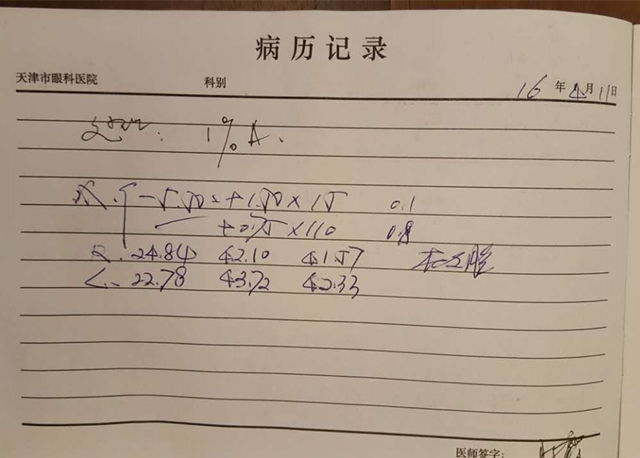 病历记录
天津市眼科医院 科别 16年4月11日
1% A.
-5.50 +1.50 × 15 0.1
+0.75 × 110 0.8
R. 24.84 42.10 41.57
L. 22.78 43.72 42.33
医师签字: